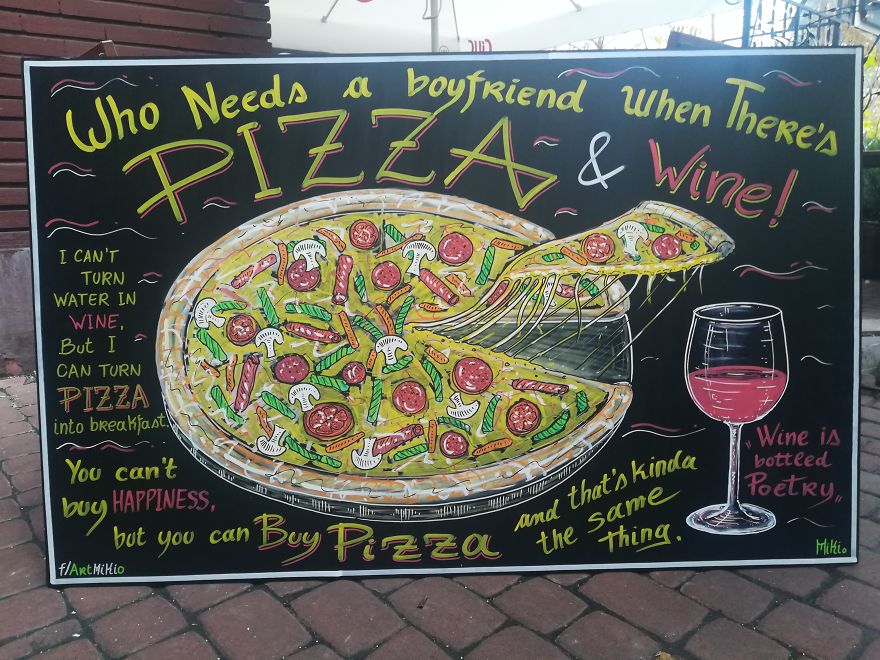 Who Needs a boyfriend when There's
PIZZA & Wine!
I CAN'T
TURN
WATER IN
WINE,
But I
CAN TURN
PIZZA
into breakfast.
You can't
buy HAPPINESS,
but you can Buy Pizza
and that's kinda
the same
thing.
„Wine is
bottled
Poetry„
f/ArtMiKio
MiKio